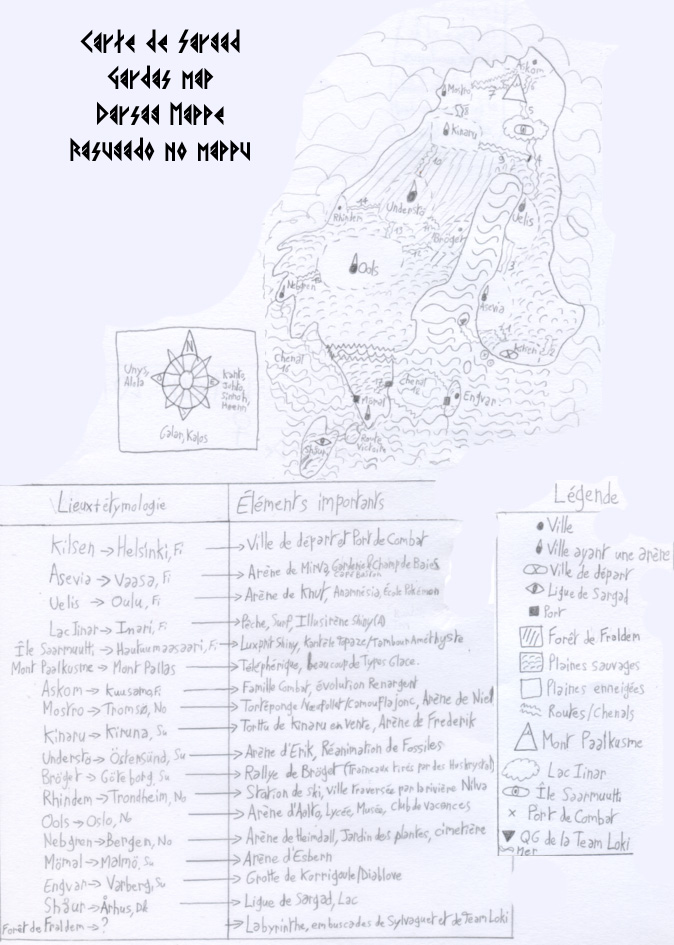 Carte de Sargad
Gardas map
Darsag Mappe
Rasugaado no mappu
Askom
Mostro
7
6
5
8
Kinaru
9
4
10
Understa
Uelis
Rhindem
14
13
Bröget
12
Ools
3
Nebgren
Asevia
2
1
Kilsen
Chenal
16
Chenal
Engvar
17
Mömal
Route
Victoire
Shâur
N
Unys,
Alola
Kanto,
Johto,
Sinnoh,
Hoenn
Galar, Kalos
Lieux+étymologie
Éléments importants
Kilsen → Helsinki, Fi → Ville de départ et Port de Combat
Asevia → Vaasa, Fi → Arène de Minva, Garderie, Champ de Baies
Uelis → Oulu, Fi → Arène de Knut, Anamnésia, École Pokémon
Lac Iinar → Inari, Fi → Pêche, Surf, Illusirène Shiny
Île Saarmuutti → Hautuumaasaari, Fi → Luxprit Shiny, Kantele Topaze/Tambour Améthyste
Mont Paatkusme → Mont Pallas → Téléphérique, beaucoup de Types Glace.
Askom → Kuusamo, Fi → Famille Combat, évolution Renargent
Mostro → Thomsø, No → Torteponge Neofollet/Camouflajonc, Arène de Niel
Kinaru → Kiruna, Su → Tortue de Kinaru en vente, Arène de Frederik
Understa → Östersünd, Su → Arène d'Erik, Réanimation de Fossiles
Bröget → Göteborg, Su → Rallye de Bröget (Traîneaux tirés par des Huskrystal)
Rhindem → Trondheim, No → Station de ski, ville traversée par la rivière Nilva
Ools → Oslo, No → Arène d'Aolto, Lycée, Musée, Club de vacances
Nebgren → Bergen, No → Arène de Heimdall, Jardin des plantes, cimetière
Mömal → Malmö, Su → Arène d'Esbern
Engvar → Varberg, Su → Grotte de Korrigoule/Diablove
Shâur → Århus, Dk → Ligue de Sargad, Lac
Forêt de Fraldem → ? → Labyrinthe, embuscades de Sylvaguet et de Team Loki
Légende
Ville
Ville ayant une arène
Ville de départ
Ligue de Sargad
Port
Forêt de Fraldem
Plaines sauvages
Plaines enneigées
Routes/Chenals
Mont Paatkusme
Lac Iinar
Île Saarmuutti
x Port de Combat
QG de la Team Loki
Mer